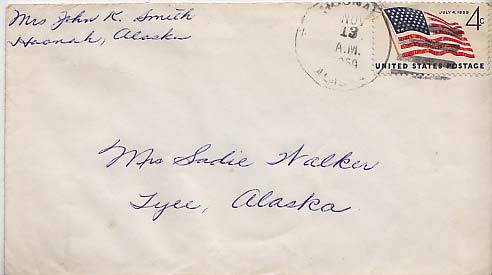 Mrs John K. Smith
Hoonah, Alaska
HOONAH
NOV
13
A.M.
1959
ALASKA
JULY 4, 1959
4c
UNITED STATES POSTAGE
Mrs Sadie Walker
Tyee, Alaska